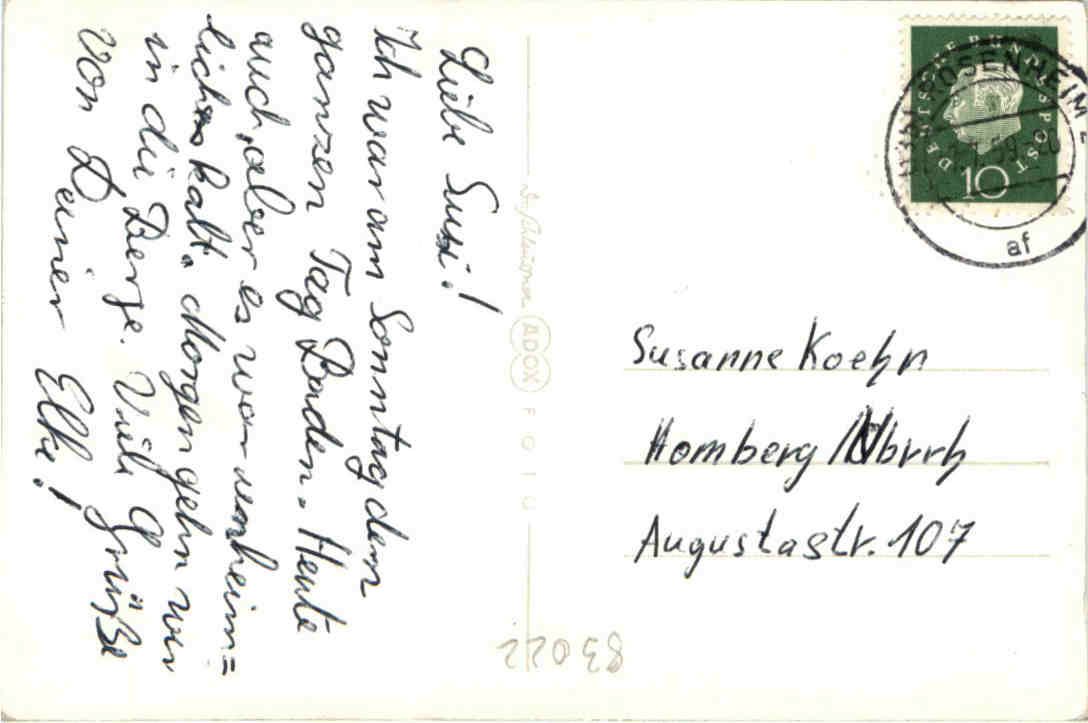 Liebe Susi!
Ich war am Sonntag den
ganzen Tag Baden. Heute
auch, aber es war unheim=
lich kalt. Morgen gehn wir
in die Berge. Viele Grüße
von Deiner Elke!
ADOX FOTO
DEUTSCHE BUNDESPOST
10
ROSENHEIM
af
Susanne Koehn
Homberg /Nbrrh
Augustastr. 107
83022